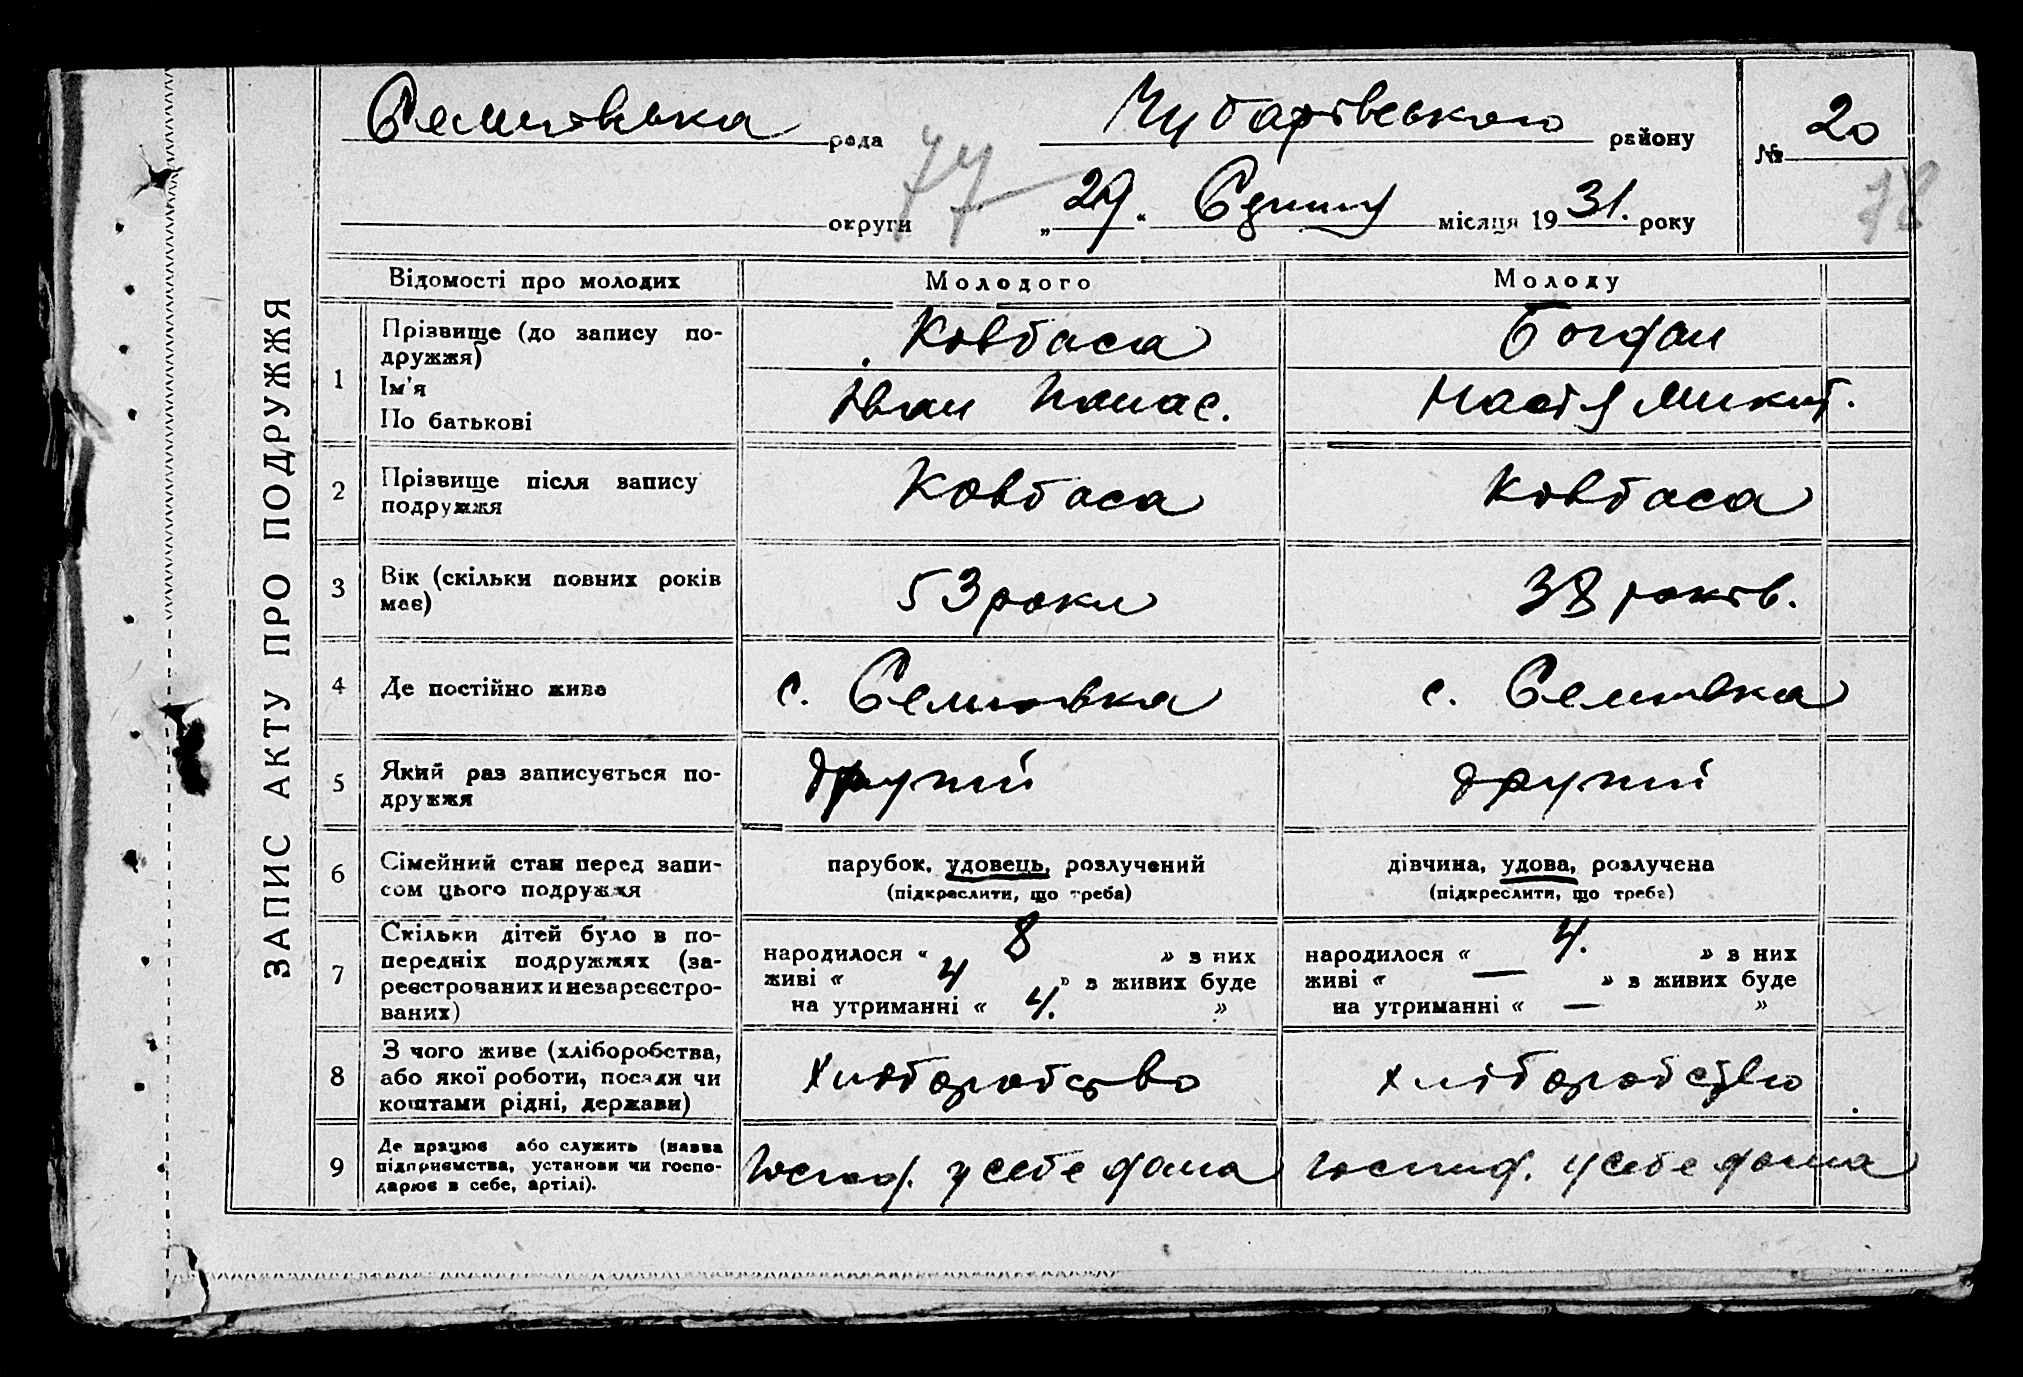 Семенівська рада Чубарівського району № 20
77 78
округи „29“ Січня місяця 1931. року
ЗАПИС АКТУ ПРО ПОДРУЖЖЯ
Відомості про молодих Молодого Молоду
1 Прізвище (до запису по-
дружжя) Ковбаса Богдан
Ім'я
По батькові Іван Панас. Настя Микит.
2 Прізвище після запису
подружжя Ковбаса Ковбаса
3 Вік (скільки повних років
має) 53 роки 38 років.
4 Де постійно живе с. Семенівка с. Семенівка
5 Який раз записується по-
дружжя другий другий
6 Сімейний стан перед запи-
сом цього подружжя
парубок, удовець, розлучений
(підкреслити, що треба)
дівчина, удова, розлучена
(підкреслити, що треба)
7 Скільки дітей було в по-
передніх подружжях (за-
реєстрованих и незареєстро-
ваних)
народилося “ 8 » з них
живі “ 4 » з живих буде
на утриманні “ 4. »
народилося “ 4. » з них
живі “ — » з живих буде
на утриманні “ — »
8 З чого живе (хліборобства,
або якої роботи, посади чи
коштами рідні, держави)
хліборобство хліборобство
9 Де працює або служить (назва
підприємства, установи чи госпо-
дарює в себе, артілі).
господ. у себе дома господ. у себе дома